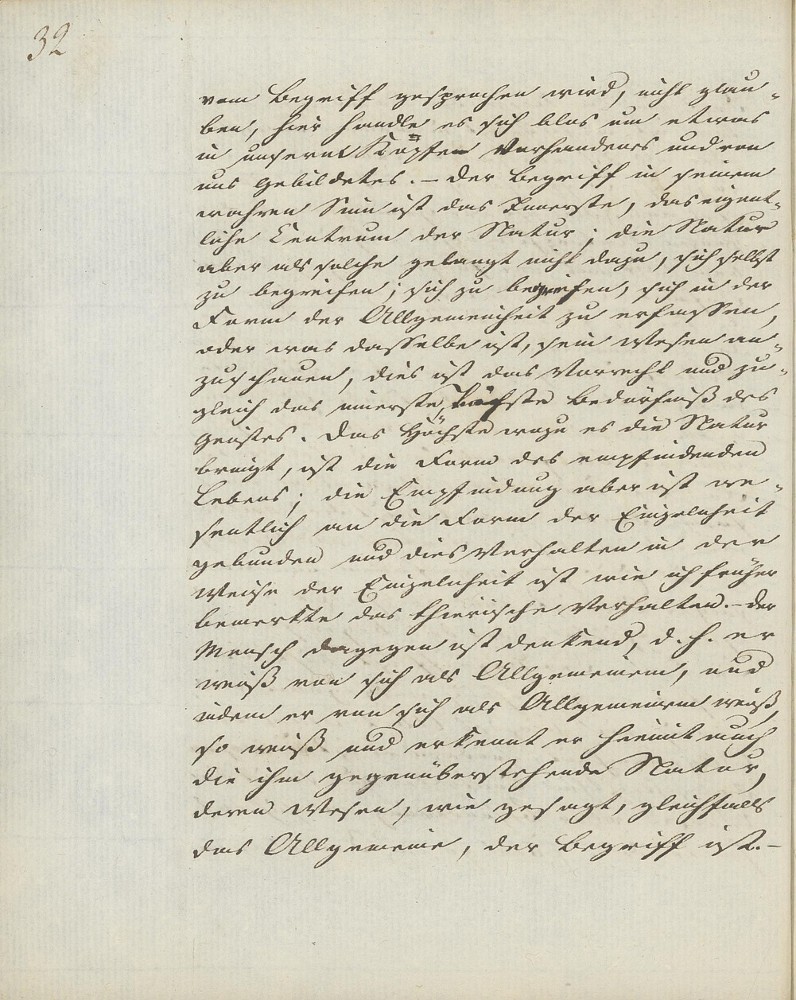 32
vom Begriff gesprochen wird, nicht glau-
ben, hier handle es sich blos um etwas
in unsern Köpfen Vorhandenes und von
uns Gebildetes. – Der Begriff in seinem
wahren Sinn ist das Innerste, das eigent-
liche Centrum der Natur; die Natur
aber als solche gelangt nicht dazu, sich selbst
zu begreifen; sich zu begreifen, sich in der
Form der Allgemeinheit zu erfassen,
oder was dasselbe ist, sein Wesen an-
zuschauen, dies ist das Vorrecht und zu-
gleich das innerste, höchste Bedürfniß des
Geistes. Das Höchste wozu es die Natur
bringt, ist die Form des empfindenden
Lebens; die Empfindung aber ist we-
sentlich an die Form der Einzelnheit
gebunden und dies Verhalten in der
Weise der Einzelnheit ist wie ich früher
bemerkte das thierische Verhalten. – Der
Mensch dagegen ist denkend, d. h. er
weiß von sich als Allgemeinem, und
indem er von sich als Allgemeinem weiß,
so weiß und erkennt er hiemit auch
die ihm gegenüberstehende Natur,
deren Wesen, wie gesagt, gleichfalls
das Allgemeine, der Begriff ist. –